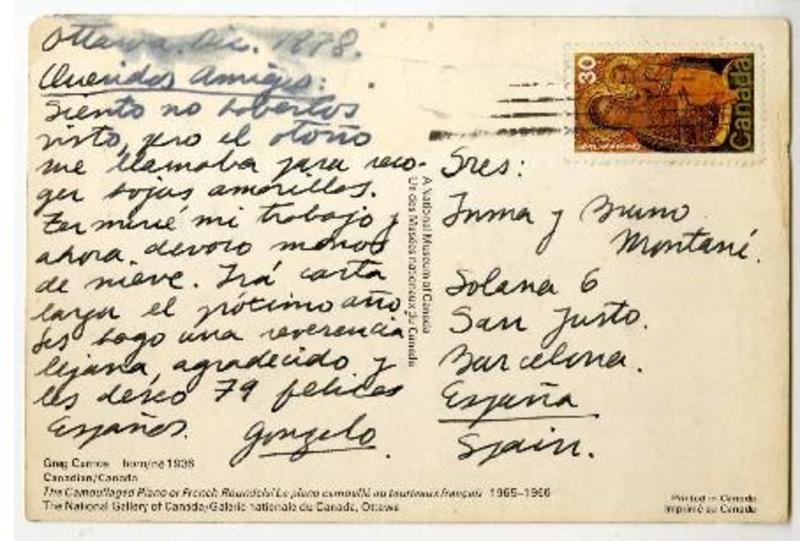 Ottawa. Dic. 1978.
Queridos Amigos:
Siento no haberlos
visto, pero el otoño
me llamaba para reco-
ger hojas amarillas.
Terminé mi trabajo y
ahora devoro
de nieve. Irá carta
larga el próximo año
les hago una reverencia
lejana, agradecido y
les deseo 79 felices
Españos.
Gonzalo.
30
Canada
Sres:
Inma y Bruno
Montané.
Solana 6
San Justo.
Barcelona.
España
Spain.
A National Museum of Canada
Un des Musées nationaux du Canada
Greg Curnoe born/né 1936
Canadian/Canada
The Camouflaged Piano or French Roundels/Le piano camouflé ou tourteaux français 1965-1966
The National Gallery of Canada/Galerie nationale du Canada, Ottawa
Printed in Canada
Imprimé au Canada